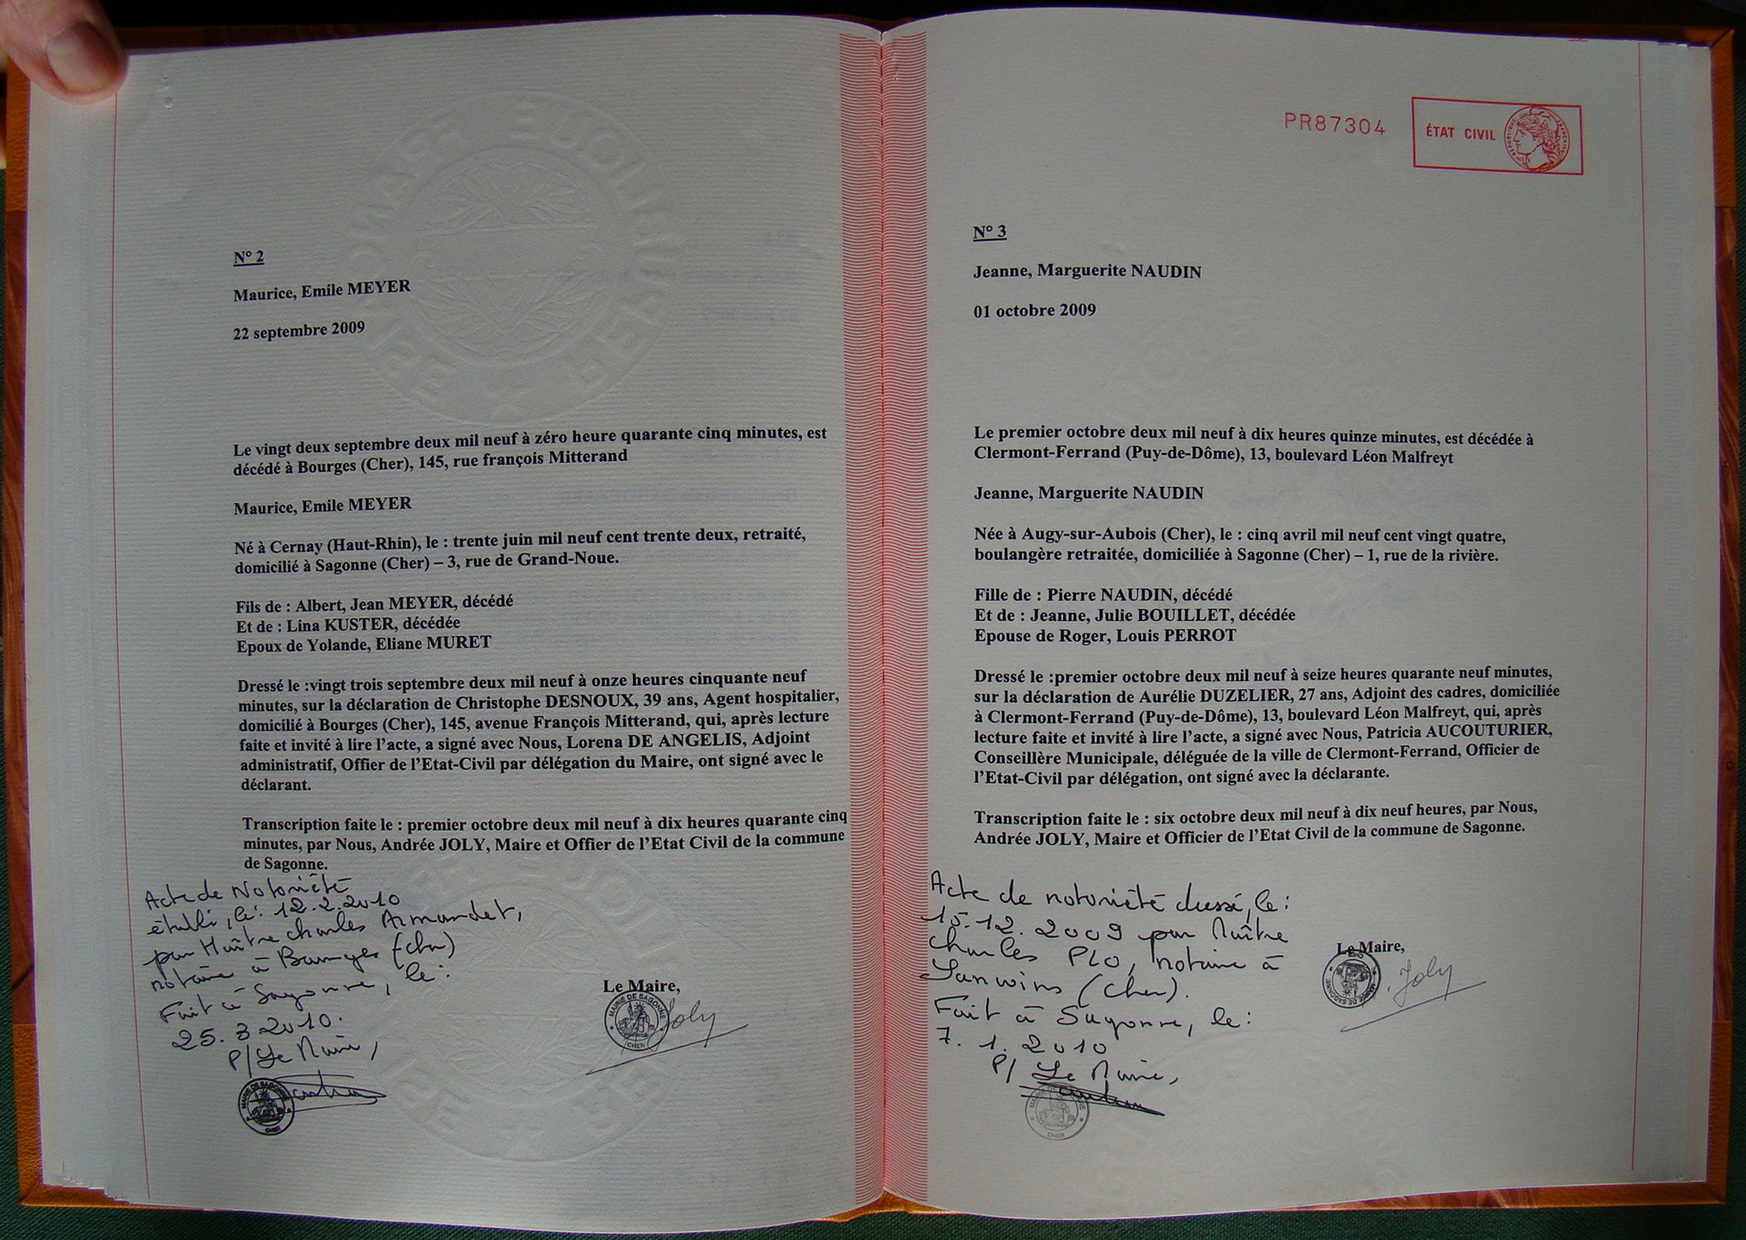 N° 2
Maurice, Emile MEYER
22 septembre 2009
Le vingt deux septembre deux mil neuf à zéro heure quarante cinq minutes, est
décédé à Bourges (Cher), 145, rue françois Mitterand
Maurice, Emile MEYER
Né à Cernay (Haut-Rhin), le : trente juin mil neuf cent trente deux, retraité,
domicilié à Sagonne (Cher) – 3, rue de Grand-Noue.
Fils de : Albert, Jean MEYER, décédé
Et de : Lina KUSTER, décédée
Epoux de Yolande, Eliane MURET
Dressé le :vingt trois septembre deux mil neuf à onze heures cinquante neuf
minutes, sur la déclaration de Christophe DESNOUX, 39 ans, Agent hospitalier,
domicilié à Bourges (Cher), 145, avenue François Mitterand, qui, après lecture
faite et invité à lire l'acte, a signé avec Nous, Lorena DE ANGELIS, Adjoint
administratif, Offier de l'Etat-Civil par délégation du Maire, ont signé avec le
déclarant.
Transcription faite le : premier octobre deux mil neuf à dix heures quarante cinq
minutes, par Nous, Andrée JOLY, Maire et Offier de l'Etat Civil de la commune
de Sagonne.
Acte de Notoriété
établi, le : 12.2.2010
par Maître Charles Armandet,
notaire à Bourges (Cher)
Fait à Sagonne, le :
25.3.2010.
P/ Le Maire,
MAIRIE DE SAGONNE
CHER
Le Maire,
MAIRIE DE SAGONNE
CHER
Joly
PR87304
ÉTAT CIVIL
N° 3
Jeanne, Marguerite NAUDIN
01 octobre 2009
Le premier octobre deux mil neuf à dix heures quinze minutes, est décédée à
Clermont-Ferrand (Puy-de-Dôme), 13, boulevard Léon Malfreyt
Jeanne, Marguerite NAUDIN
Née à Augy-sur-Aubois (Cher), le : cinq avril mil neuf cent vingt quatre,
boulangère retraitée, domiciliée à Sagonne (Cher) – 1, rue de la rivière.
Fille de : Pierre NAUDIN, décédé
Et de : Jeanne, Julie BOUILLET, décédée
Epouse de Roger, Louis PERROT
Dressé le :premier octobre deux mil neuf à seize heures quarante neuf minutes,
sur la déclaration de Aurélie DUZELIER, 27 ans, Adjoint des cadres, domiciliée
à Clermont-Ferrand (Puy-de-Dôme), 13, boulevard Léon Malfreyt, qui, après
lecture faite et invité à lire l'acte, a signé avec Nous, Patricia AUCOUTURIER,
Conseillère Municipale, déléguée de la ville de Clermont-Ferrand, Officier de
l'Etat-Civil par délégation, ont signé avec la déclarante.
Transcription faite le : six octobre deux mil neuf à dix neuf heures, par Nous,
Andrée JOLY, Maire et Officier de l'Etat Civil de la commune de Sagonne.
Acte de notoriété dressé, le :
15.12.2009 par Maître
Charles PLO, notaire à
Sancoins (Cher).
Fait à Sagonne, le :
7.1.2010
P/ Le Maire,
MAIRIE DE SAGONNE
CHER
Le Maire,
MAIRIE DE SAGONNE
Joly